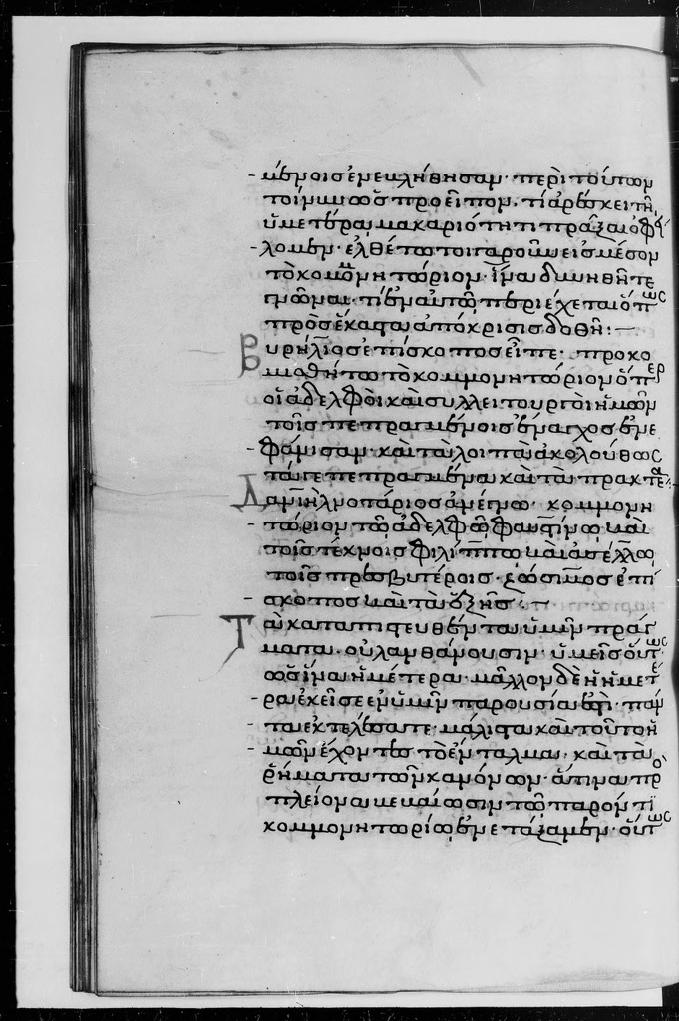 μένοις ἐνεκλήθησαν· περὶ τούτων
τοίνυν ὡς προεῖπον, τί ἀρέσκει τῇ
ὑμετέρα μακαριότητι πρᾶξαι ὀφεί
λομεν· ἐλθέτω τοιγαροῦν εἰς μέσον
τὸ κομμονητώριον· ἵνα δυνηθῆτε
γνῶναι· τί ἐν αὐτῶ περιέχεται ὅπως
πρὸς ἕκαστα ἀπόκρισις δοθῆ:—
Βυρήλιος ἐπίσκοπος εἶπε· προκο
μισθήτω τὸ κομμονητώριον ὅπερ
οἱ ἀδελφοὶ καὶ συλλειτουργοὶ ἡμῶν
τοῖς πεπραγμένοις ἔναγχος ἐνε
φάνισαν· καὶ τὰ λοιπὰ ἀκολούθως
τά τε πεπραγμένα καὶ τὰ πρακτέα:
Δανιὴλ νοτάριος ἀνέγνω· κομμονη
τώριον τῶ ἀδελφῶ φαυστίνω καὶ
τοῖς τέκνοις φιλίππω καὶ ἀσέλλω
τοῖς πρεσβυτέροις· ζώσιμος ἐπί
σκοπος καὶ τὰ ἑξῆς:—
Τὰ καταπιστευθέντα ὑμῖν πράγ
ματα· οὐ λανθάνουσιν· ὑμεῖς οὕτως
ὡς ἵνα ἡ ἡμετέρα· μᾶλλον δὲ ἡ ἡμετέ
ρα ἐκεῖσε ἐν ὑμῖν παρουσία ἐστὶ· πάν
τα ἐκτελέσατε· μάλιστα καὶ τοῦτο ἡ
μῶν ἔχοντες τὸ ἔνταλμα· καὶ τὰ
ῥήματα τῶν κανόνων· ἅτινα πρὸ
πλείονα κεκαίωσιν τῶ παρόντι
κομμονητωρίω ἐνετάξαμεν· οὕτως